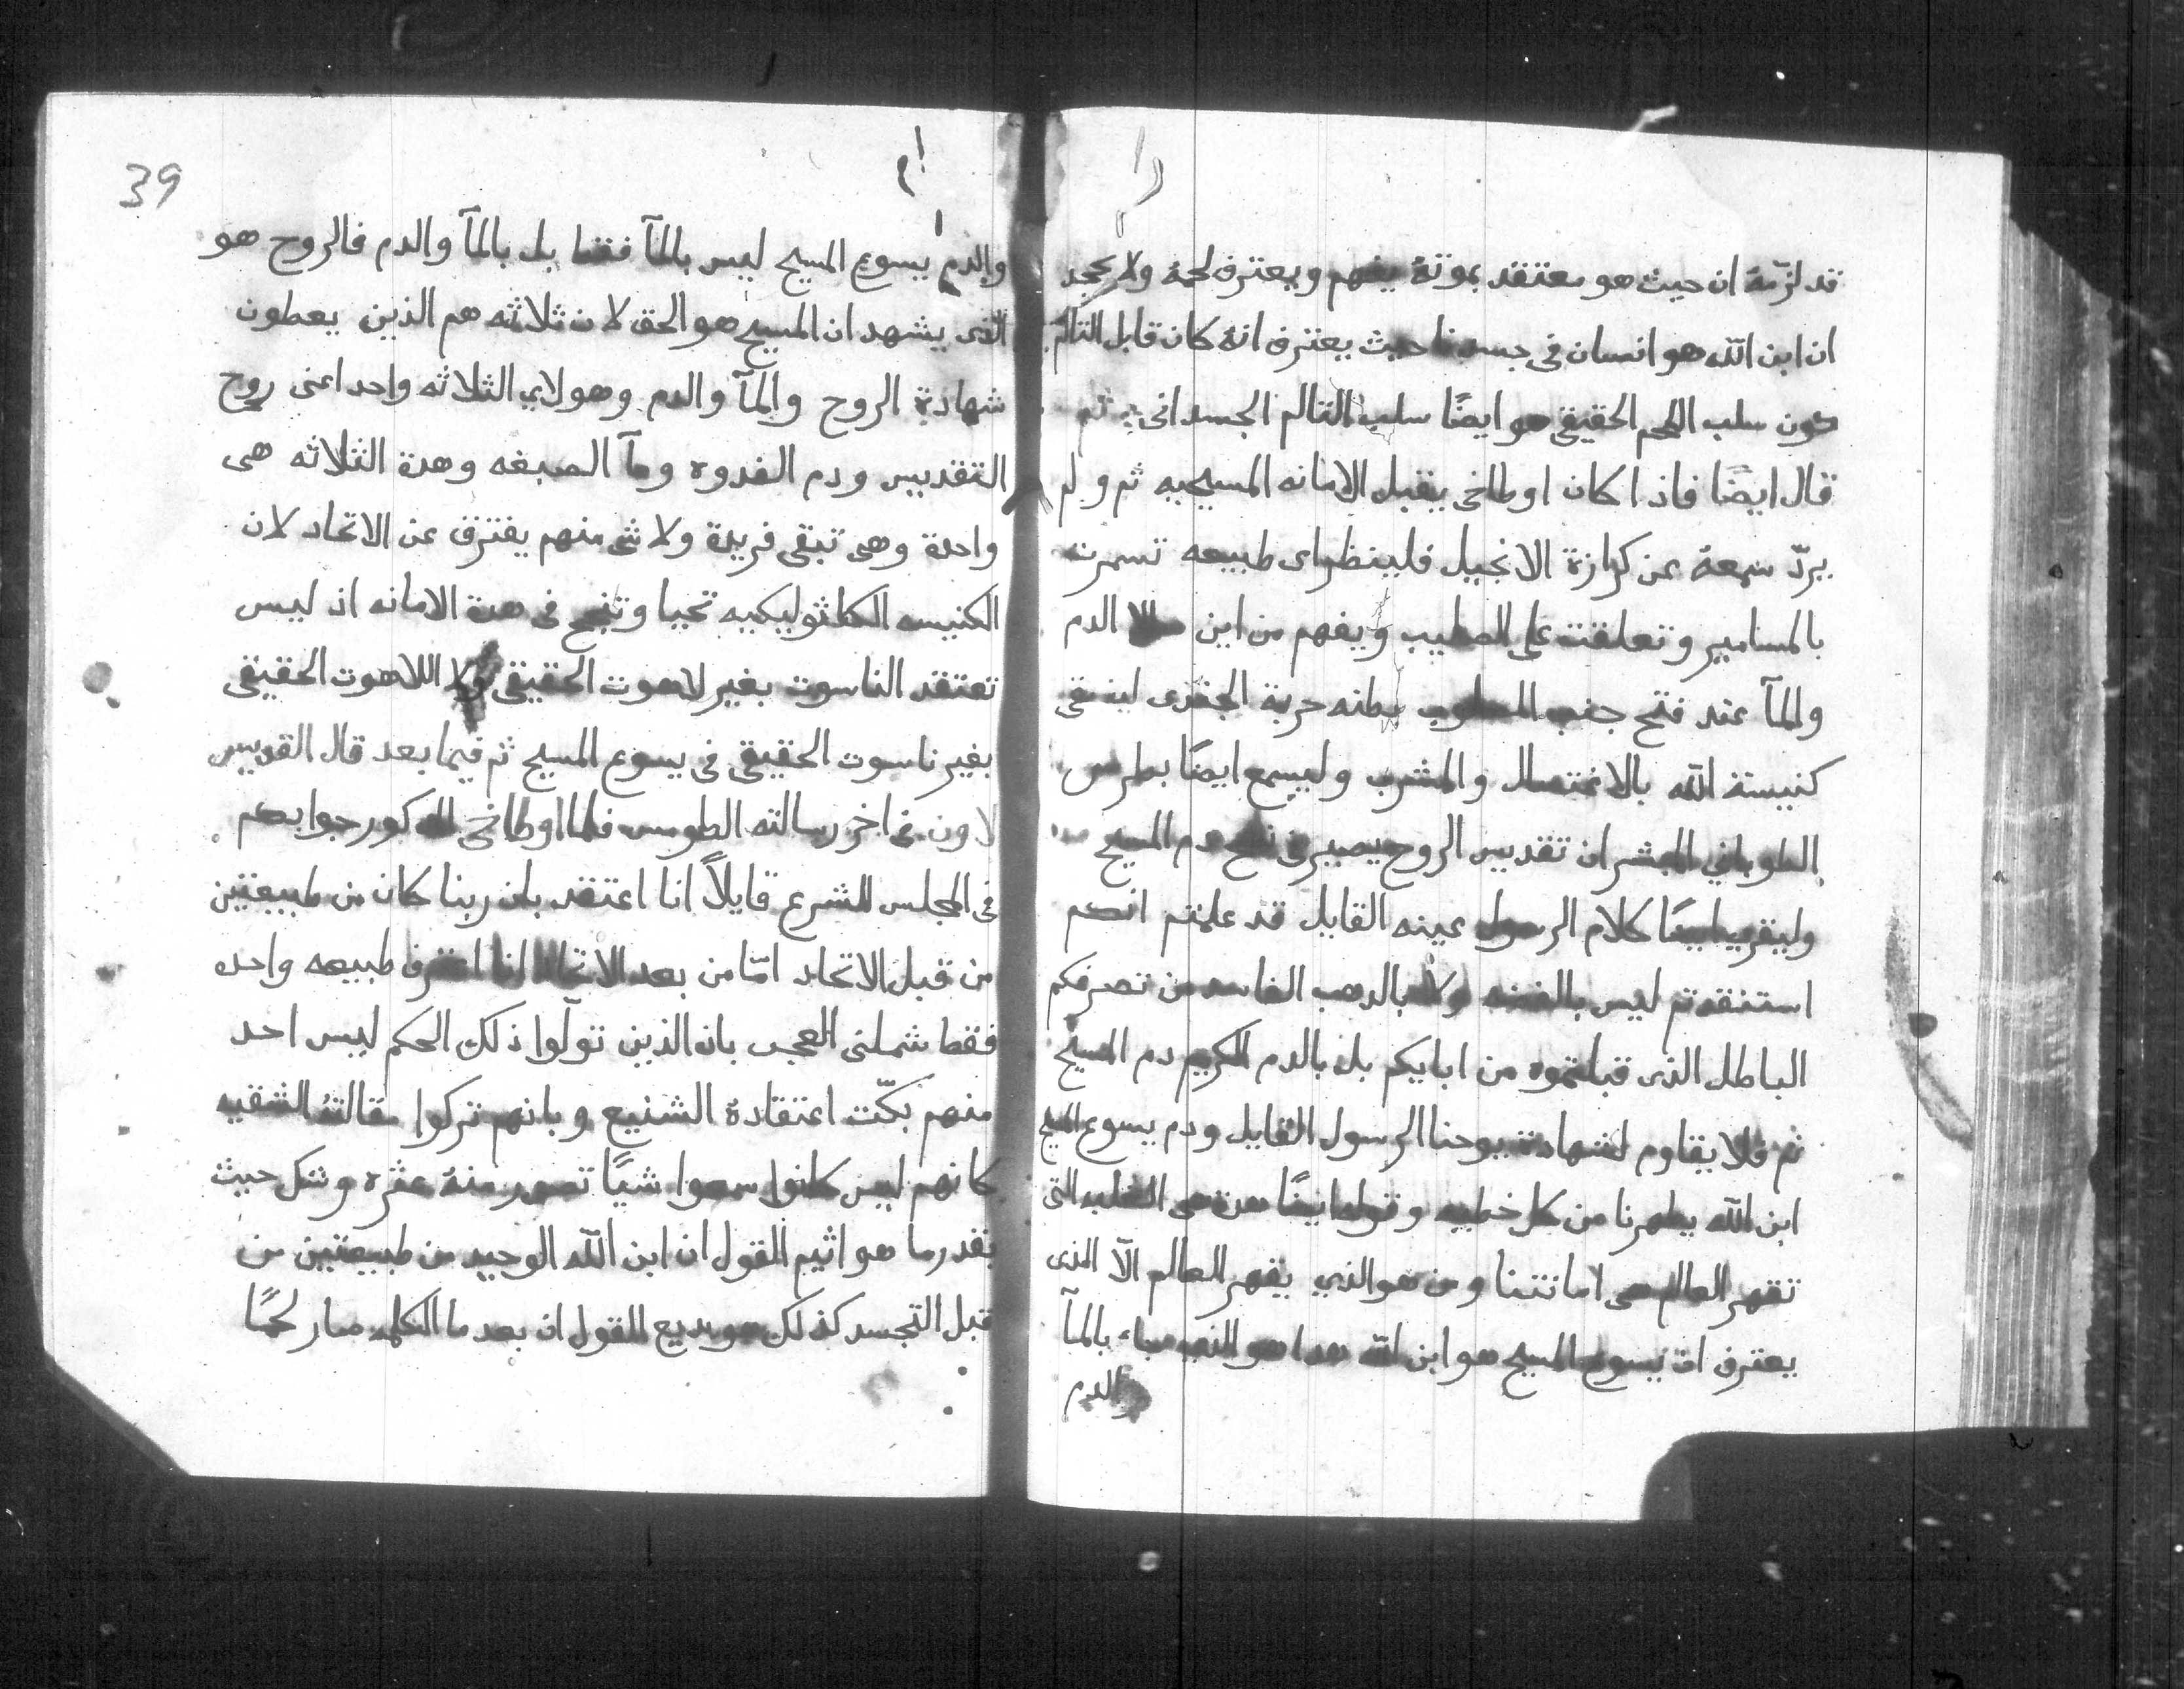 قد لزمهٔ ان حيث هو معتقد بموتهٔ يفهم ويعترف لحمهٔ ولا يجحد
ان ابن الله هو انسان فى جسدنا حيث يعترف انهٔ كان قابل التالم
دون سلب اللحم الحقيقى هو ايضًا سلب التالم الجسدانى ثم
قال ايضًا فاذا كان اوطاخى يقبل الامانه المسيحيه ثم ولم
يردّ سمعهٔ عن كرازة الانجيل فلينظر اى طبيعه تسمرت
بالمسامير وتعلقت على الصليب ويفهم من اين الدم
والمآ عند فتح جنب المصلوب حربة الجندى
كنيسة الله بالاغتسال والمشرب وليسمع ايضًا بطرس
الطوباني المبشر ان تقديس الروح يصير فى نضح دم المسيح
كلام الرسول عينه القايل قد علمتم انكم
ليس بالفضه ولا بالدهب الفاسد من تصرفكم
الباطل الذى قبلتموه من ابايكم بل بالدم الكريم دم المسيح
ثم فلا يقاوم لشهادة يوحنا الرسول القايل ودم يسوع المسيح
ابن الله يطهرنا من كل خطيه وقوله ايضًا هدة هى الغلبه التى
تقهر العالم هى امانتنا ومن هو الذي يقهر العالم الآ الذى
يعترف ان يسوع المسيح هو ابن الله هدا هو الذى جاء بالمآ
والدم
39
والدم يسوع المسيح ليس بالمآ فقط بل بالمآ والدم فالروح هو
الذى يشهد ان المسيح هو الحق لان ثلاثه هم الذين يعطون
شهادة الروح والمآ والدم وهولاي الثلاثه واحد اعنى روح
التقديس ودم الفدوه ومآ الصبغه وهدة الثلاثه هى
واحدة وهى تبقى فريدة ولا شى منهم يفترق عن الاتحاد لان
الكنيسه الكاثوليكيه تحيا وتنجح فى هدة الامانه اذ ليس
تعتقد الناسوت بغير لاهوت الحقيقى ولا اللاهوت الحقيقى
بغير ناسوت الحقيقى فى يسوع المسيح ثم فيما بعد قال القديس
لاون فى اخر رسالته الطومس فلما اوطاخى المدكور جوابكم
فى المجلس المشرع قايلاً انا اعتقد بان ربنا كان من طبيعتين
من قبل الاتحاد امّا من بعد الاتحاد انا اعترف طبيعه واحده
فقط شملنى العجب بان الذين تولّوا ذلك الحكم ليس احد
منهم بكّت اعتقادة الشنيع وبانهم تركوا مقالتهٔ الشقيه
كانهم ليس كانوا سمعوا شيًا تصدر منهٔ عثره وشك حيث
بقدر ما هو اثيم القول ان ابن الله الوحيد من طبيعتين من
قبل التجسد كذلك هو بديع القول ان بعد ما الكلمه صار لحمًا